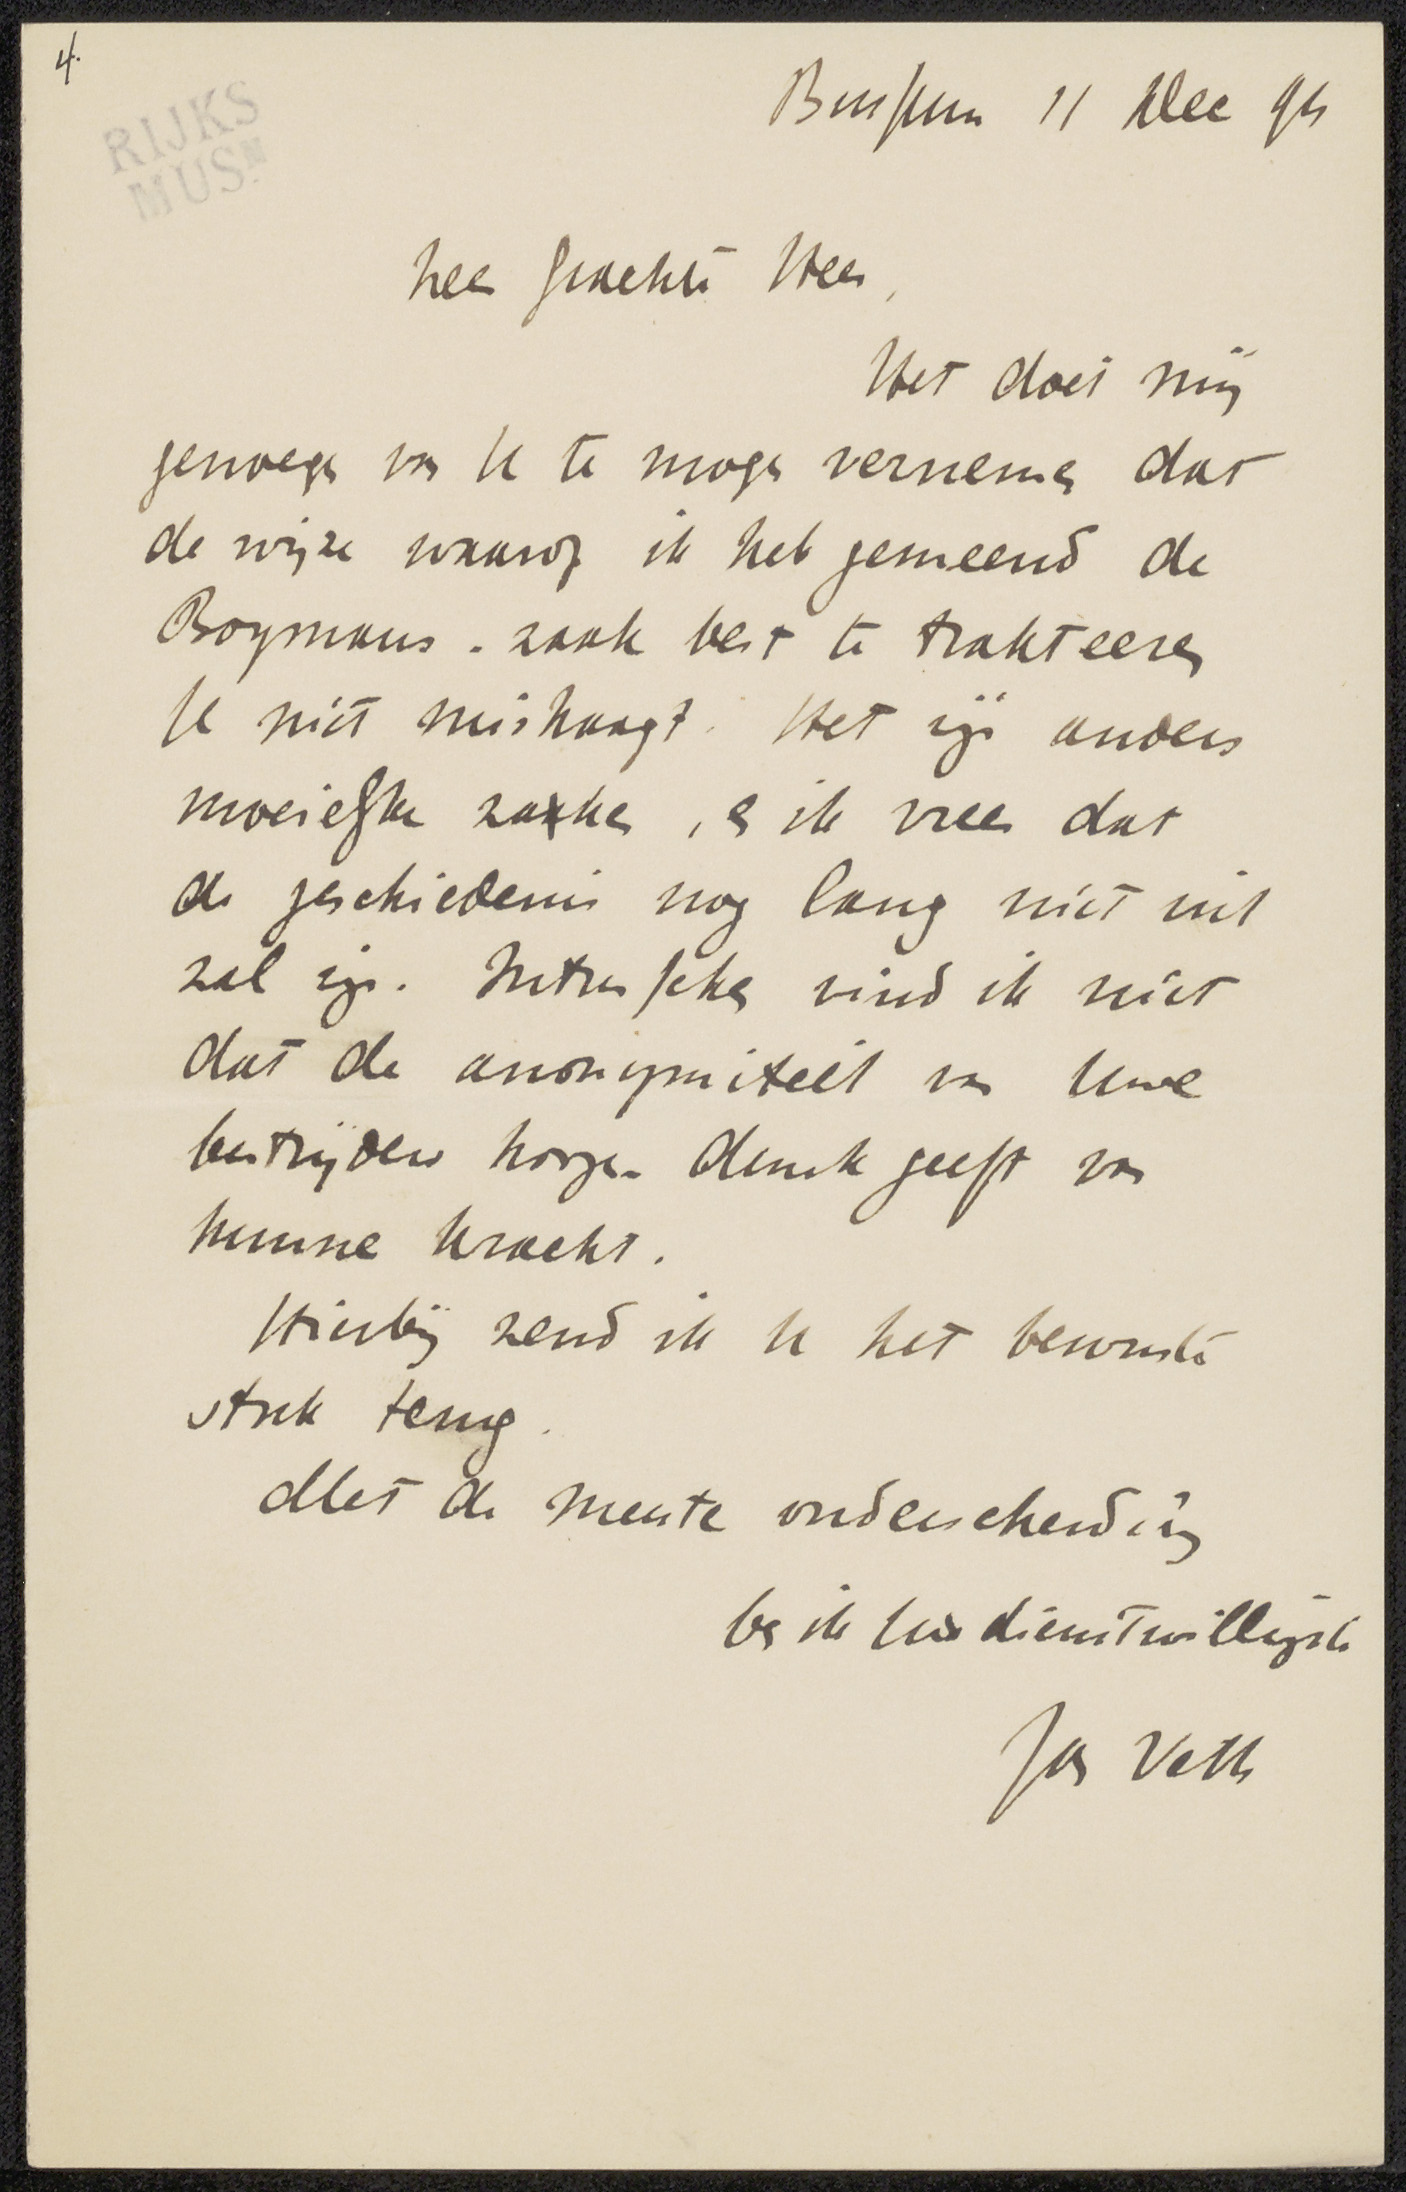 4.
RIJKS
MUSM.
Bussum 11 Dec 95
Zeer geachte Heer,
Het doet mij
genoegen van U te mogen vernemen dat
de wijze waarop ik heb gemeend de
Boymans-zaak best te trakteeren
U niet mishaagt. Het zijn anders
moeielijke zaken, en ik vrees dat
de geschiedenis nog lang niet uit
zal zijn. Intusschen vind ik niet
dat de anonymiteit van Uwe
bestrijders hooge dunk geeft van
hunne kracht.
Hierbij zend ik U het bewuste
stuk terug.
Met de meeste onderscheiding
ben ik Uw dienstwillige
Jan Veth